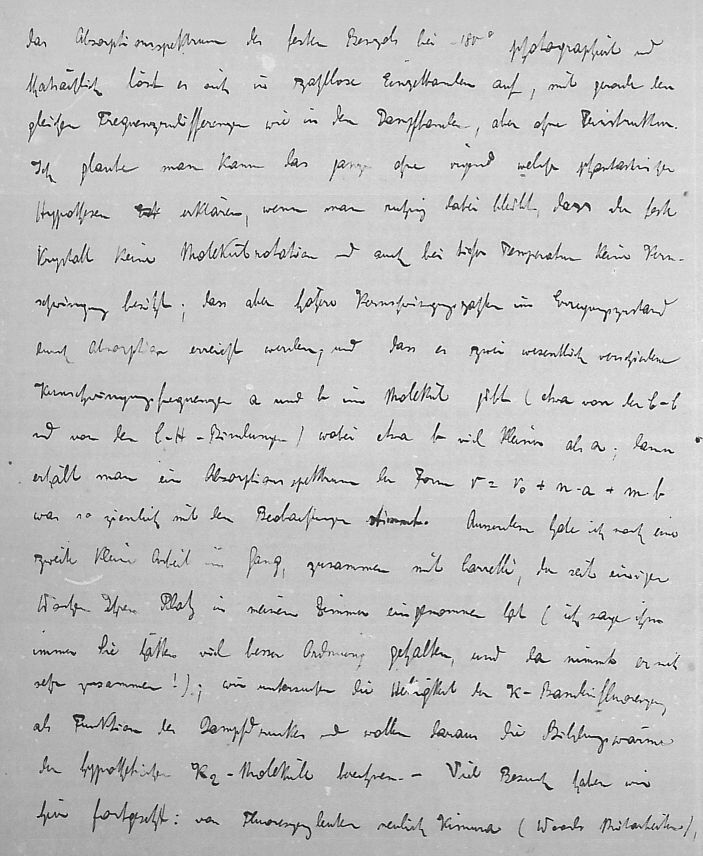 das Absorptionsspektrum des festen Benzols bei -180° photographiert und
tatsächlich löst es sich in zahllose Einzelbanden auf, mit gerade den
gleichen Frequenzendifferenzen wie in den Dampfbanden, aber ohne Feinstruktur.
Ich glaube man kann das ganz ohne irgend welche phantastischen
Hypothesen erklären, wenn man ruhig dabei bleibt, dass der feste
Krystall keine Molekülrotation und auch bei tiefer Temperatur keine Kern-
schwingung besitzt; dass aber höhere Kernschwingungszahlen im Erregungszustand
durch Absorption erreicht werden, und dass es zwei wesentlich verschiedene
Kernschwingungsfrequenzen a und b im Molekül gibt (etwa von den C-C
und von den C-H-Bindungen) wobei etwa b viel kleiner als a; dann
erhält man ein Absorptionsspektrum der Form ν = ν₀ + n·a + m·b
was so ziemlich mit den Beobachtungen stimmt. Ausserdem habe ich noch eine
zweite kleine Arbeit im Gang, zusammen mit Carrelli, der seit einigen
Wochen Ihren Platz in meinem Zimmer eingenommen hat (ich sage ihm
immer Sie hätten viel besser Ordnung gehalten, und da nimmt er sich
sehr zusammen!); wir untersuchen die Helligkeit der K-Bandenfluoreszenz
als Funktion des Dampfdruckes und wollen daraus die Bildungswärme
der hypothetischen K₂-Moleküle berechnen. – Viel Besuch haben wir
hier fortgesetzt: von Fluoreszenzleuten neulich Kimura (Woods Mitarbeiter),